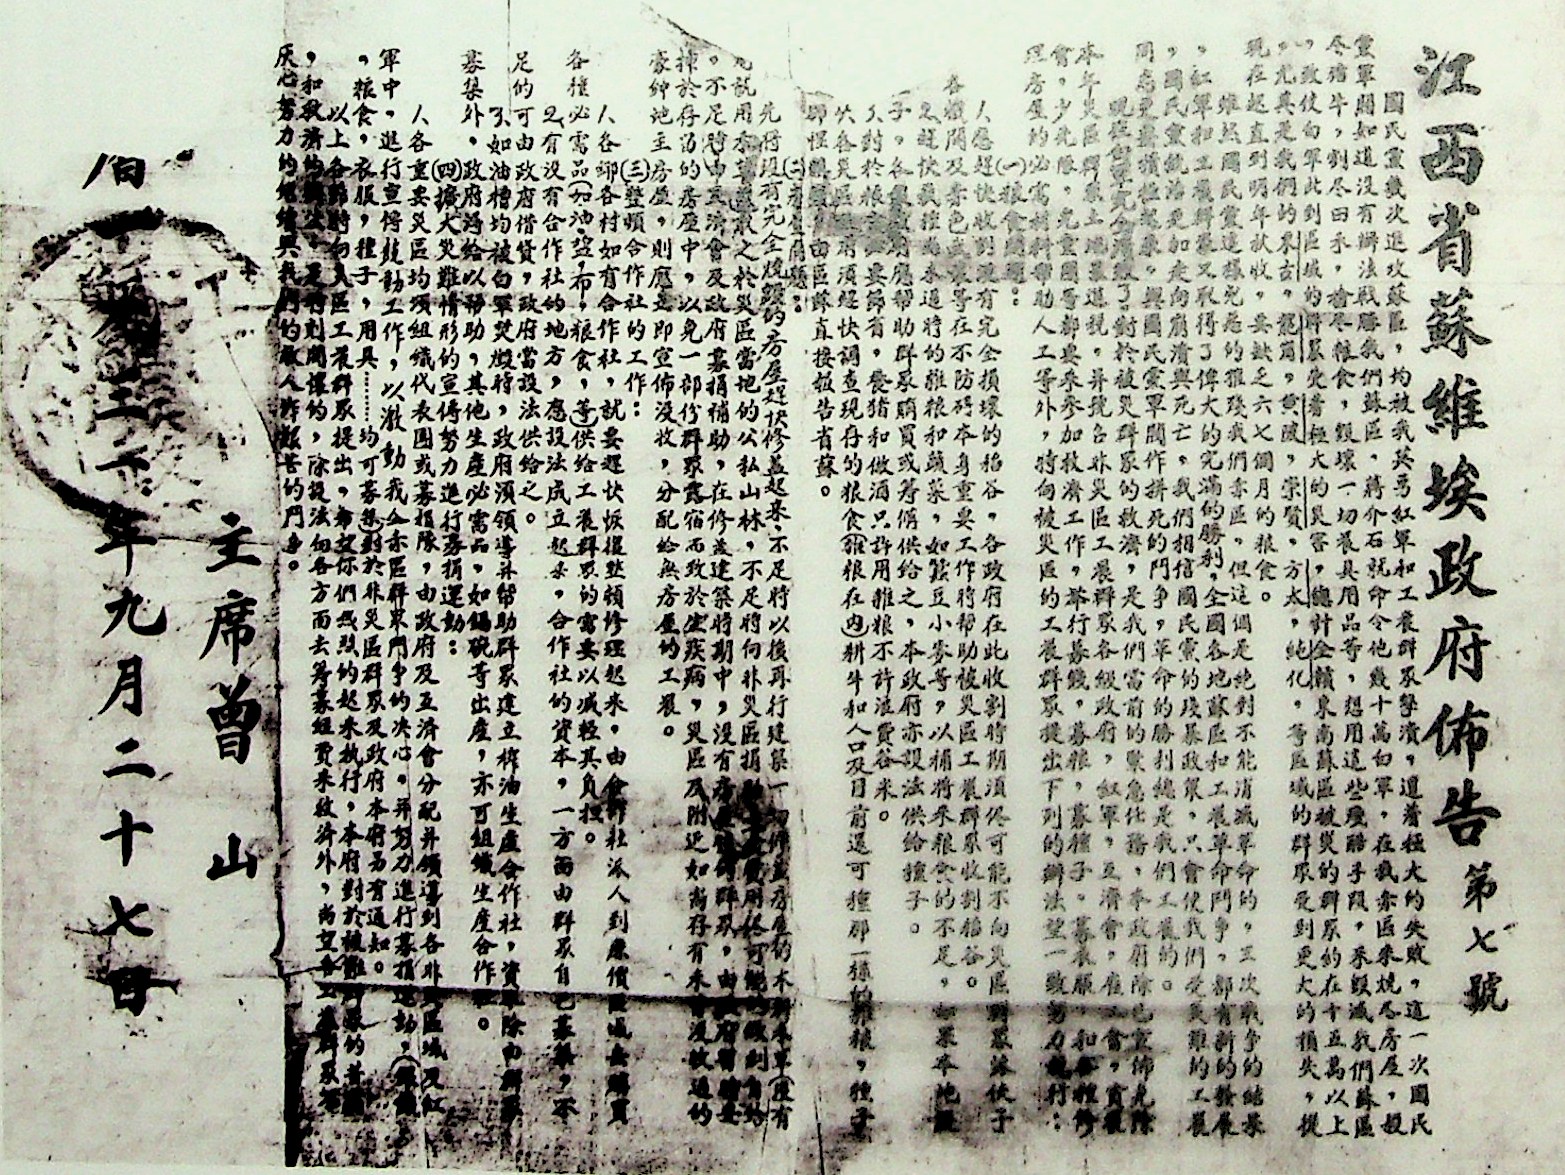 江西省蘇維埃政府佈告 第七號
國民黨幾次進攻蘇區,均被我英勇紅軍和工農群眾擊潰,遭着極大的失敗,這一次國民
黨軍閥如道沒有辦法戰勝我們蘇區,蔣介石就命令他幾十萬白軍,在我赤區來燒尽房屋,殺
尽猪牛,割尽田禾,搶尽粮食,毀壞一切農具用品等,想用這些殘酷手段,來毀滅我們蘇區
,致使白軍此到區域的群眾受着極大的災害,總計全贛東南蘇區被災的群眾約在十五萬以上
,尤其是我們的東古,龍岡,黄陂,崇賢,方太,純化,等區域的群眾受到更大的損失,從
現在起直到明年秋收,要缺乏六七個月的粮食。
雖然國民黨這樣兇惡的摧殘我們赤區,但這個是絕對不能消滅革命的,三次戰争的結果
,紅軍和工農群眾又取得了偉大的完滿的勝利,全國各地蘇區和工農革命鬥争,都有新的發展
,國民黨統治更加走向崩潰與死亡,我們相信國民黨的殘暴政策,只會使我們受災難的工農
同志更要積極起來,與國民黨軍閥作拼死的鬥争,革命的勝利總是我們工農的。
現在紅軍完全勝利了對於被災群眾的救濟,是我們當前的緊急任務,本政府除已宣佈免除
本年災區群眾土地累進税,并號召非災區工農群眾各級政府,紅軍,互濟會,雇工會,貧農
會,少先隊,兒童團等都要來参加救濟工作,举行募錢,募粮,募種子,募衣服,和各種修
理房屋的必需材料帮助人工等外,特向被災區的工農群眾提出下列的辦法望一致努力執行:
(一)粮食問題:
人應趕快收割還有完全損壞的稻谷,各政府在此收割時期須侭可能不向災區群眾派伕子
各機關及赤色戒嚴等在不防碍本身重要工作時帮助被災區工農群眾收割稻谷。
又趕快栽種尚未過時的雜粮和蔬菜,如䕀豆小麥等,以補將來粮食的不足,如果本地缺
子,各級政府應帮助群眾購買或筹偹供給之,本政府亦設法供給種子。
久對於粮食要節省,養猪和做酒只許用雜粮不許滥費谷米。
欠各災區政府須趕快調查現存的粮食(雜粮在内)耕牛和人口及目前還可種那一樣的雜粮,種子
(二)房屋問題:
先将没有完全燒毀的房屋趕快修盖起來,不足時以後再行建築一切修盖房屋的木料本軍(座有
,不足時由互濟會及政府募捐補助,在修盖建築時期中,没有房屋住的群眾,由政府督促安
揷於存留的房屋中,以免一部份群眾露宿而致於生疾病,災區及附近如尚存有未曾没收過的
豪紳地主房屋,則應立即宣佈没收,分配給無房屋的工農。
(三)整頓合作社的工作:
人各鄉各村如有合作社,就要趕快恢復整頓修理起來,由合作社派人到廉價區域去購買
各種必需品(如油,鹽,布,粮食,等)供給工農群眾的需要以减輕其負担。
又有没有合作社的地方,應設法成立起來,合作社的資本,一方面由群眾自己募集,不
足的可由政府借貸,政府當設法供給之。
不如油槽均被白軍焚燬時,政府須領導并幫助群眾建立榨油生産合作社,資本除由群眾
募集外,政府得給以帮助,其他生産必需品,如鍋碗等出産,亦可組織生産合作社。
(四)擴大災難情形的宣傳努力進行募捐運動:
人各重要災區均須組織代表團或募捐隊,由政府及互濟會分配并領導到各非災區域及紅
軍中,進行宣傳鼓動工作,以激動我全赤區群眾鬥争的决心。并努力進行募捐運動,(銀錢
,粮食,衣服,種子,用具……均可募集)對於非災區群眾及政府本府另有通知。
以上各節特向災區工農群眾提出,希望你們熱烈的起來執行,本府對於被難群眾的苦痛
,和救濟的辦法,是時刻關懷的,除設法向各方面去筹募經費來救濟外,尚望各工農群眾不
灰心努力的繼續與我們的敵人作艱苦的鬥争。
主席曾山
一九三一年九月二十七日